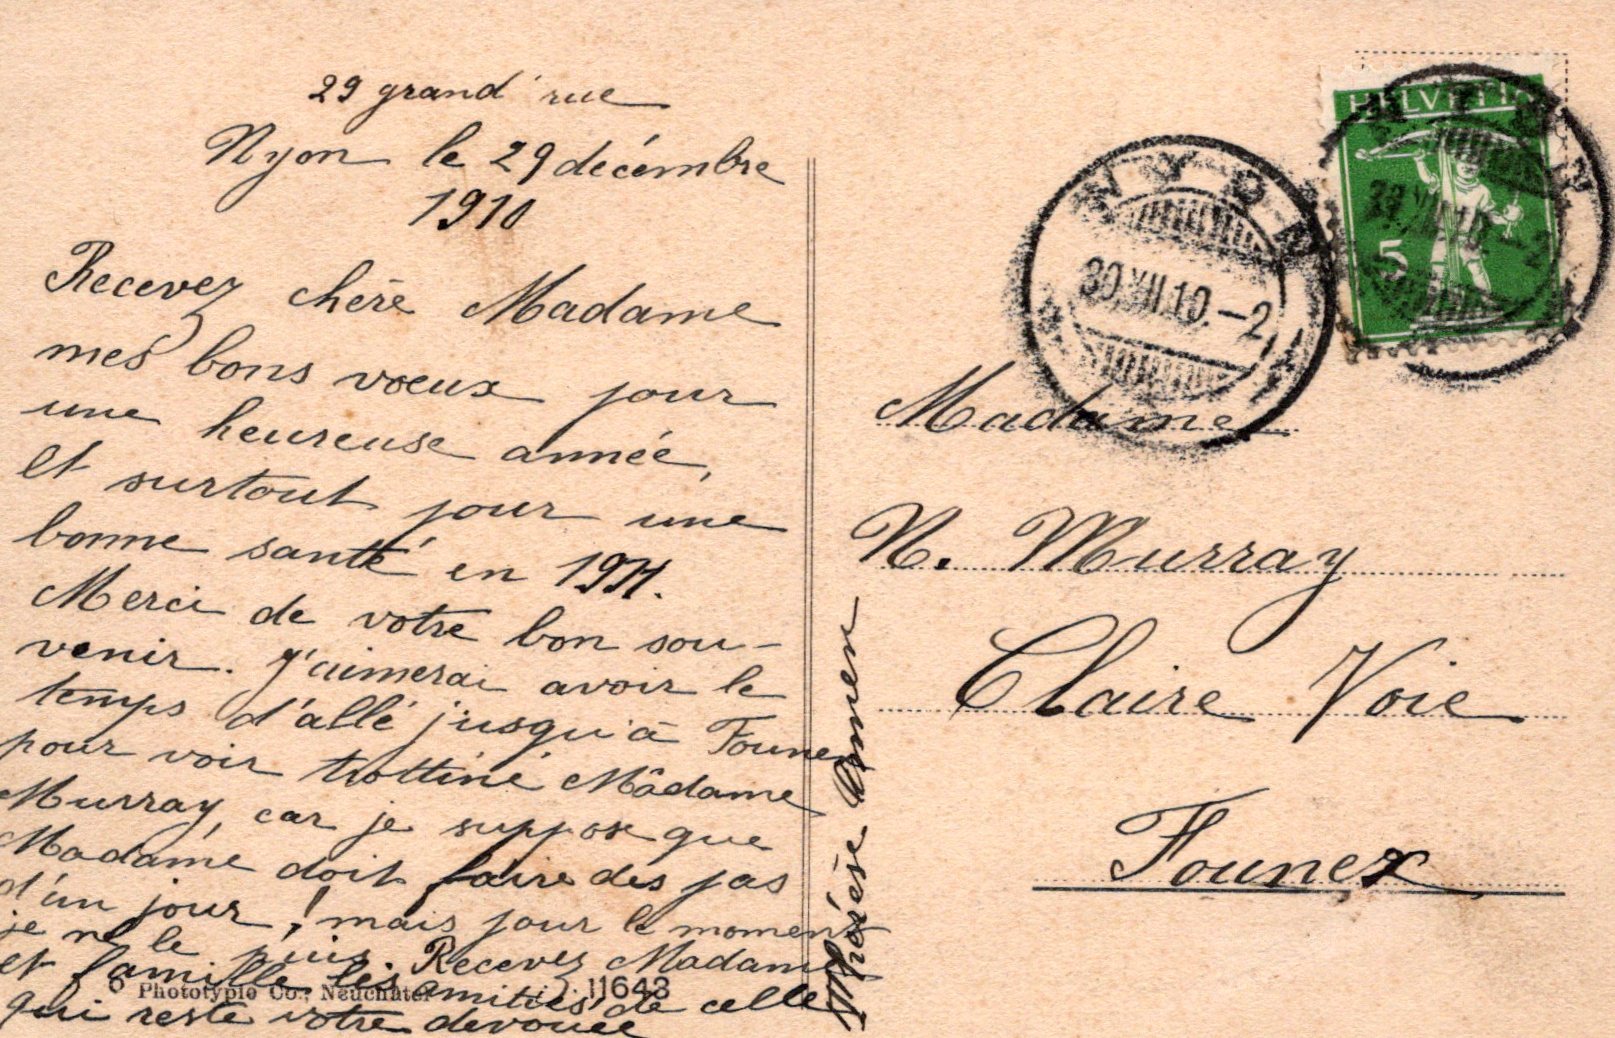 29 grand' rue
Nyon le 29 décembre
1910
Recevez chère Madame
mes bons voeux pour
une heureuse année,
et surtout pour une
bonne santé en 1911.
Merci de votre bon sou-
venir. J'aimerai avoir le
temps d'allé jusqu'à Founex
pour voir trottiné Mâdame
Murray, car je suppose que
Madame doit faire des pas
d'un jour! mais pour le moment
je ne le puis. Recevez Madame
et famille les amitiés de celle
qui reste votre dévouée
Thérèse
6 Phototypie Co., Neuchâtel
11643
HELVETIA
5
NYON
30.XII.10.–2
NYON
Madame
N. Murray
Claire Voie
Founex